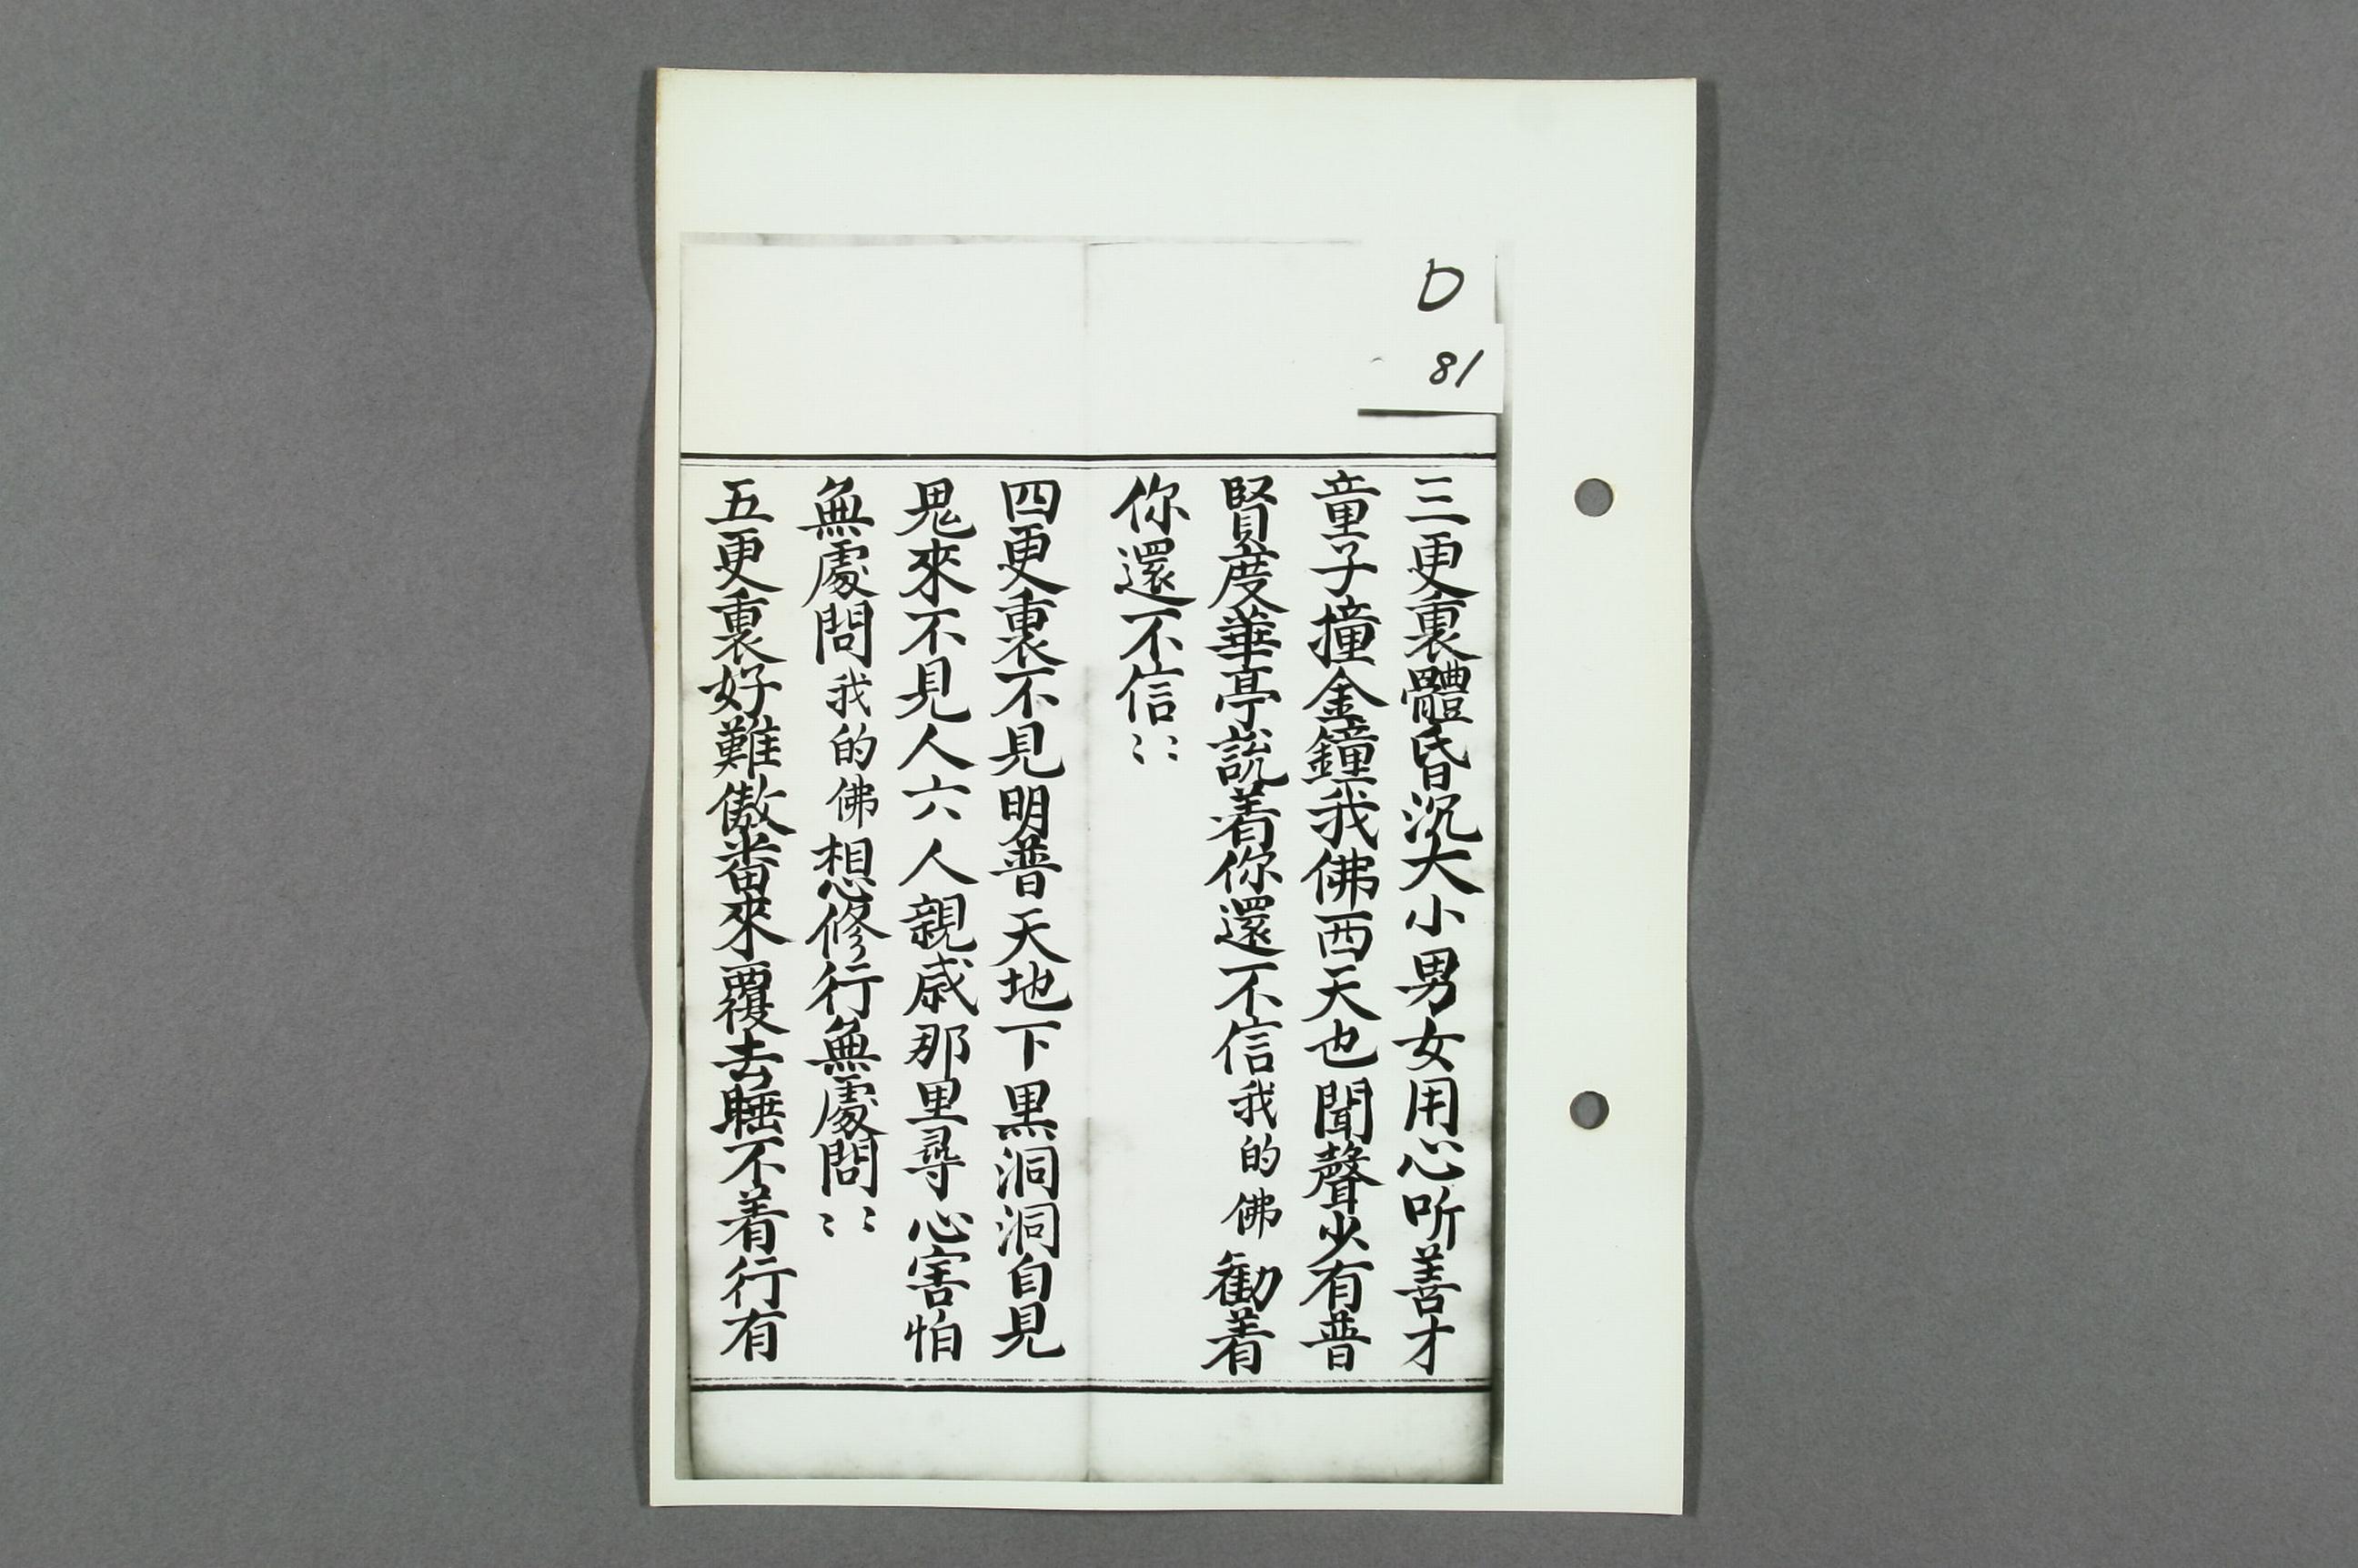 D
81
三更裏體昏沉大小男女用心听善才
童子撞金鐘我佛西天也聞聲少有普
賢度華亭說着你還不信我的佛勸着
你還不信〻〻
四更裏不見明普天地下黑洞洞自見
鬼來不見人六人親戚那里尋心害怕
無處問我的佛想修行無處問〻〻
五更裏好難傲番來覆去睡不着行有